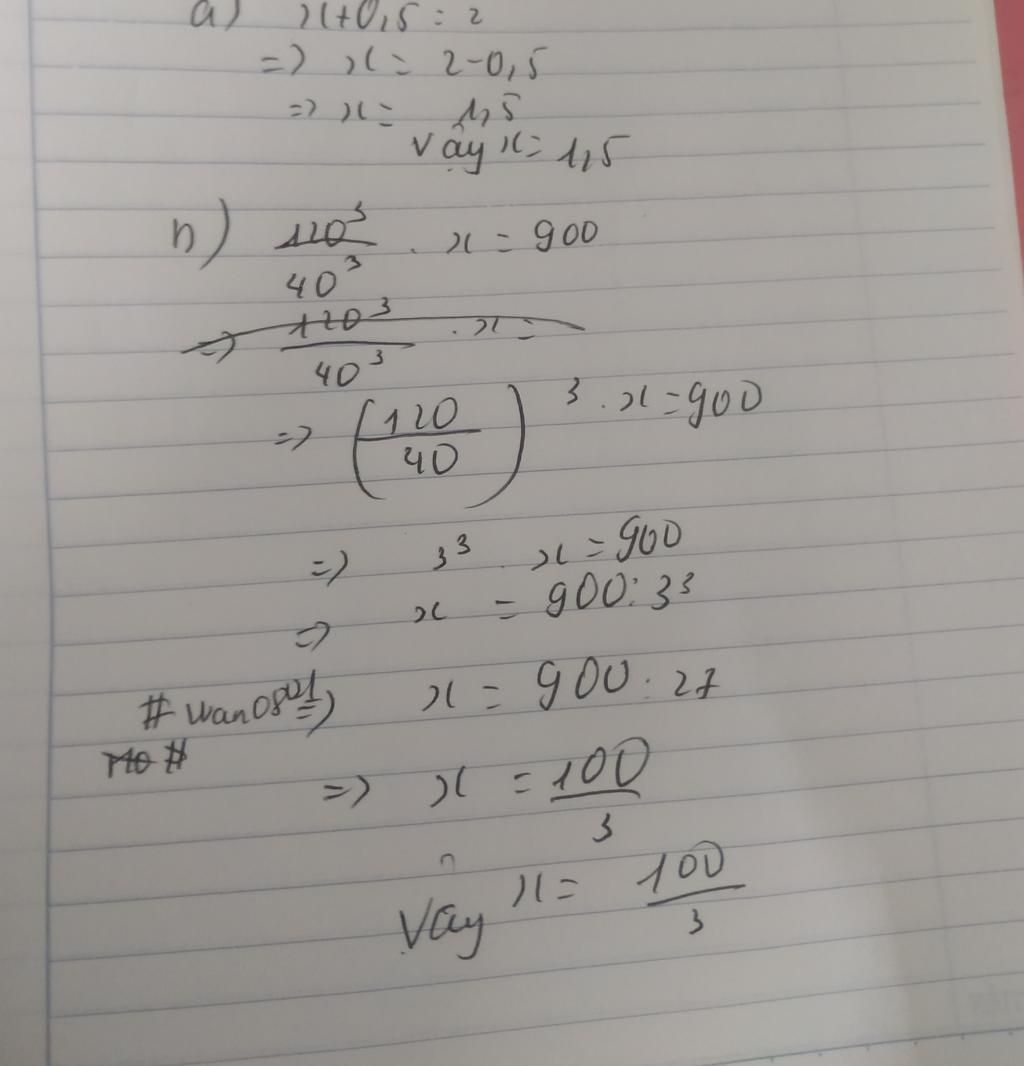 a) x+0,5 = 2
=> x = 2-0,5
=> x = 1,5
Vậy x = 1,5
n) 120³/40³ . x = 900
=> 120³/40³ . x =
=> (120/40)³ . x = 900
=> 3³ . x = 900
=> x = 900 : 3³
=> x = 900 : 27
=> x = 100/3
Vậy x = 100/3